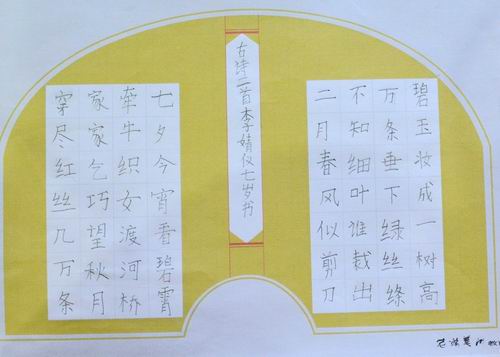 碧玉妆成一树高
万条垂下绿丝绦
不知细叶谁裁出
二月春风似剪刀
古诗二首李婧仪七岁书
七夕今宵看碧霄
牵牛织女渡河桥
家家乞巧望秋月
穿尽红丝几万条